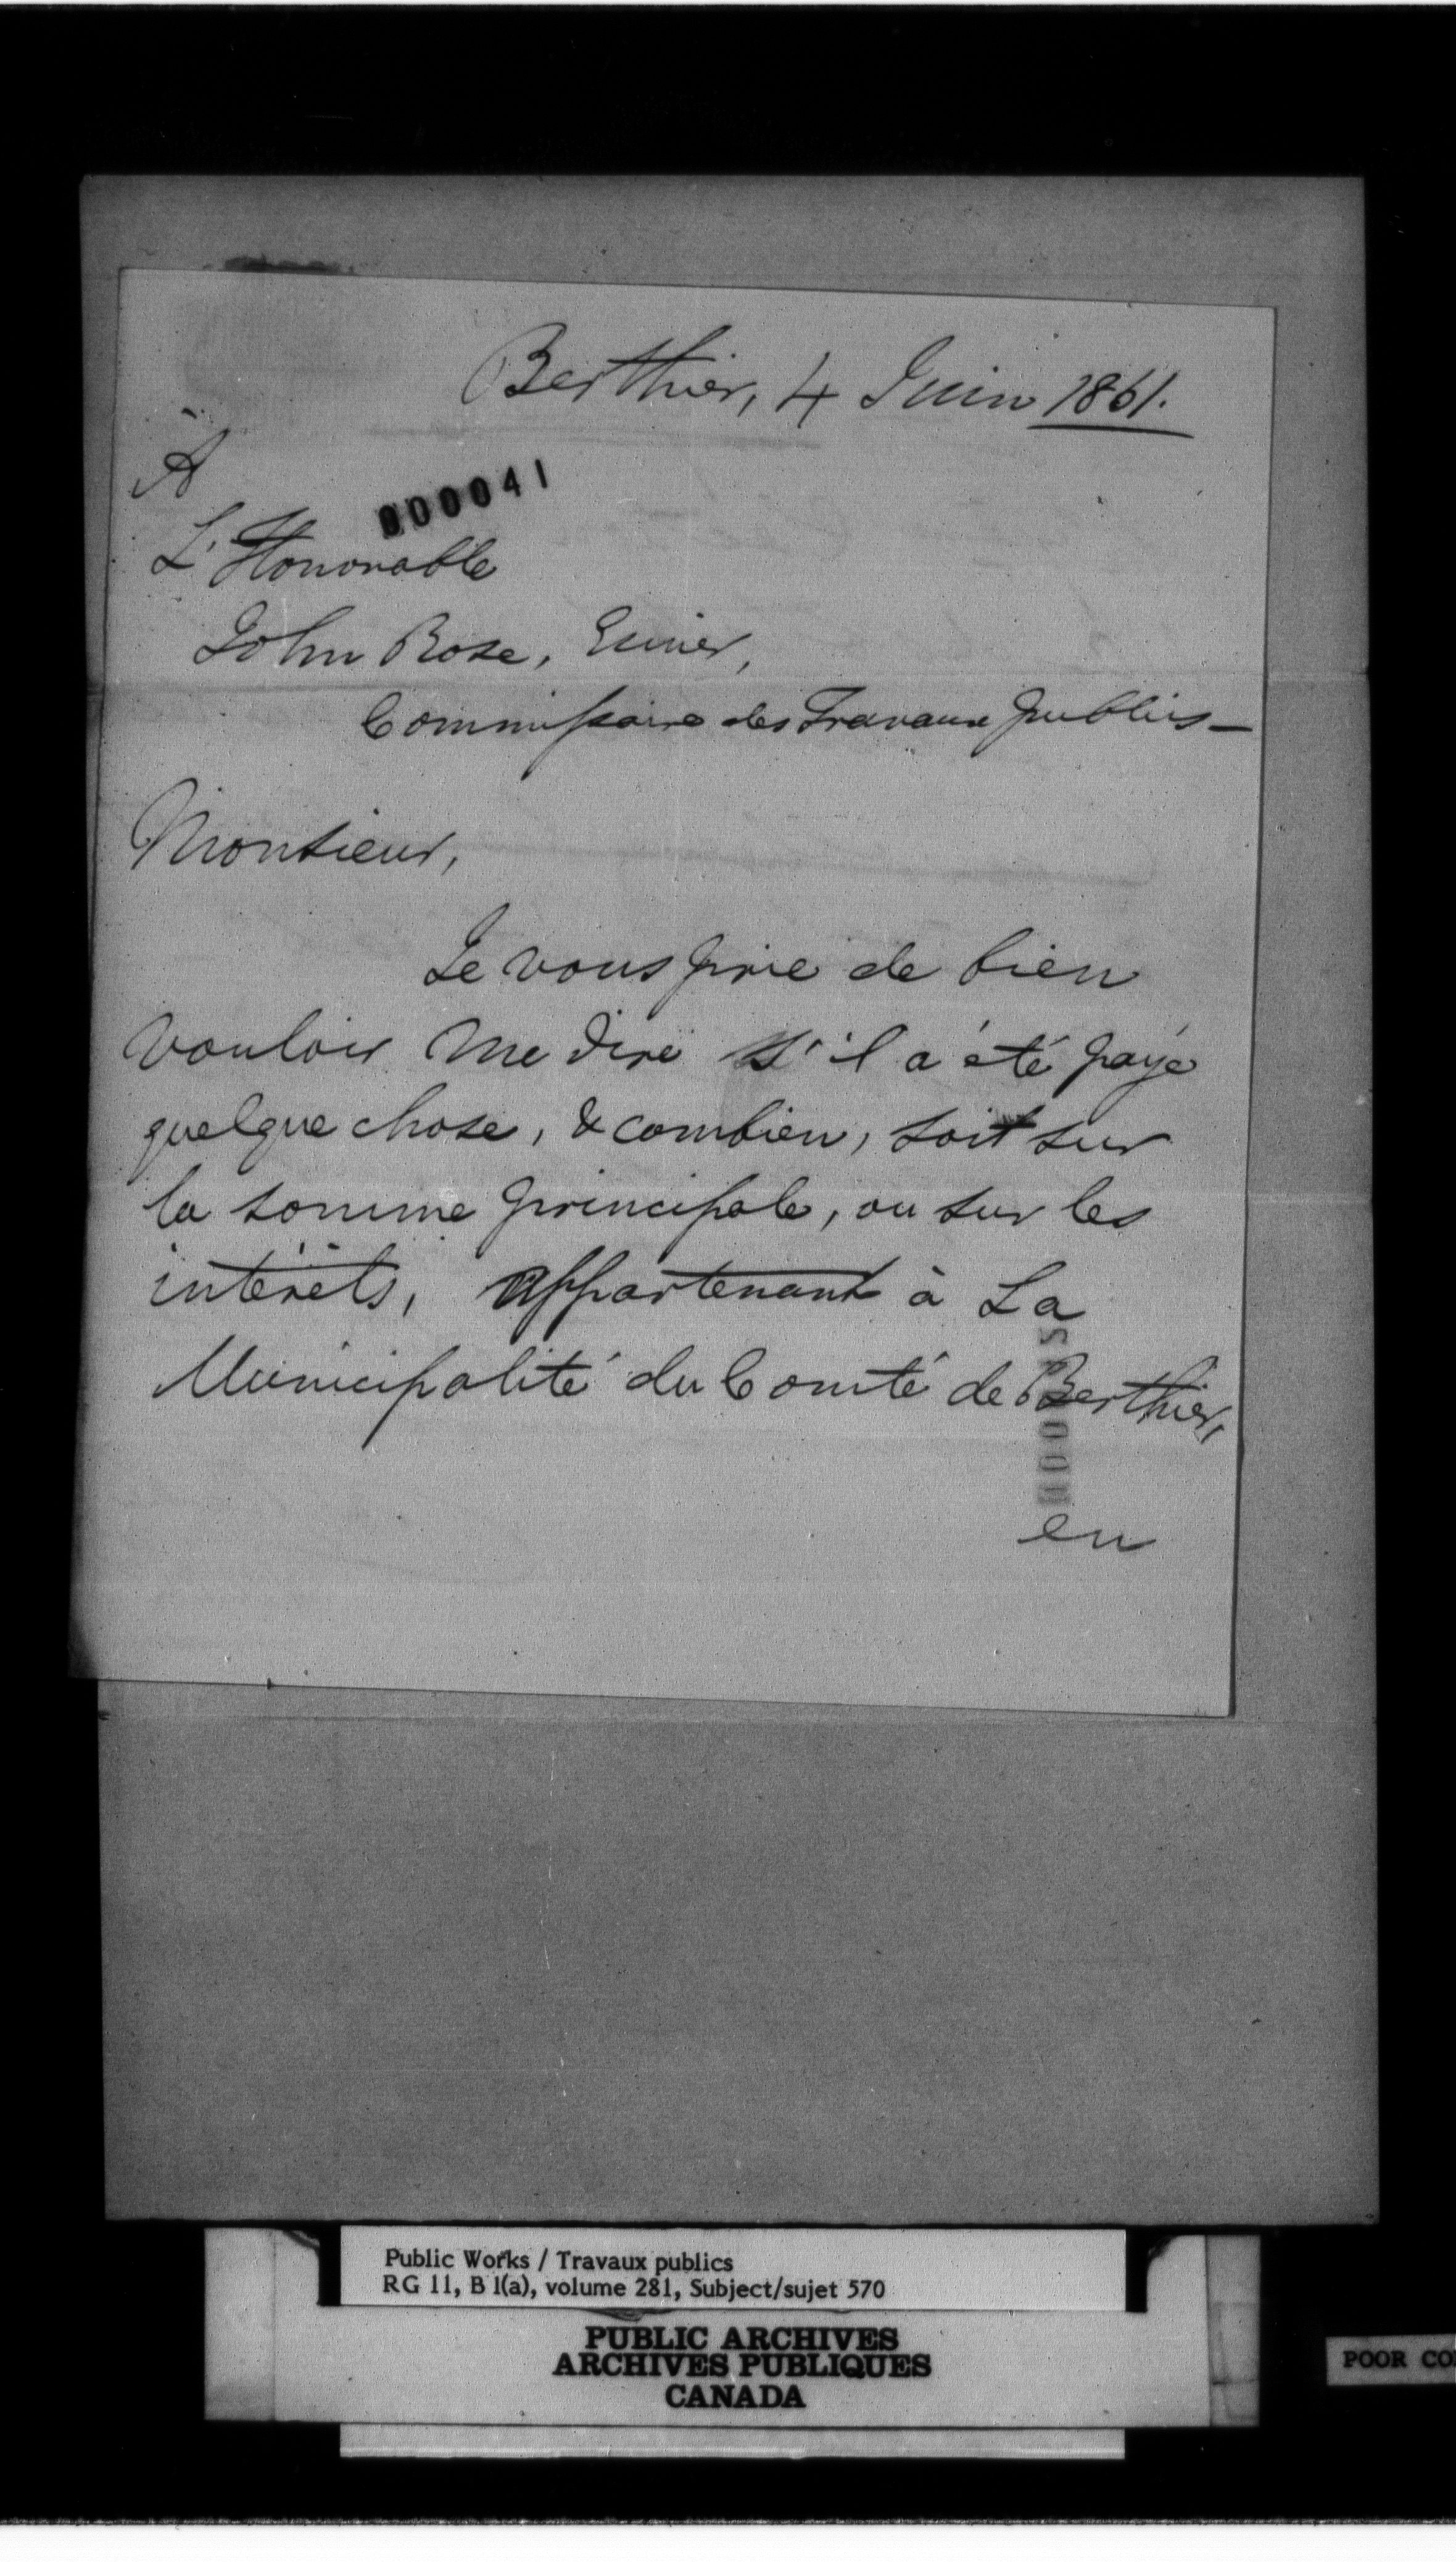 Berthier, 4 Juin 1861.
À
000041
L'Honorable
John Rose, Ecuier,
Commissaire des Travaux publics—
Monsieur,
Je vous prie de bien
vouloir me dire s'il a été payé
quelque chose, & combien, soit sur
la somme principale, ou sur les
intérêts, appartenant à La
Municipalité du Comté de Berthier,
en
Public Works / Travaux publics
RG 11, B 1(a), volume 281, Subject/sujet 570
PUBLIC ARCHIVES
ARCHIVES PUBLIQUES
CANADA
POOR CO